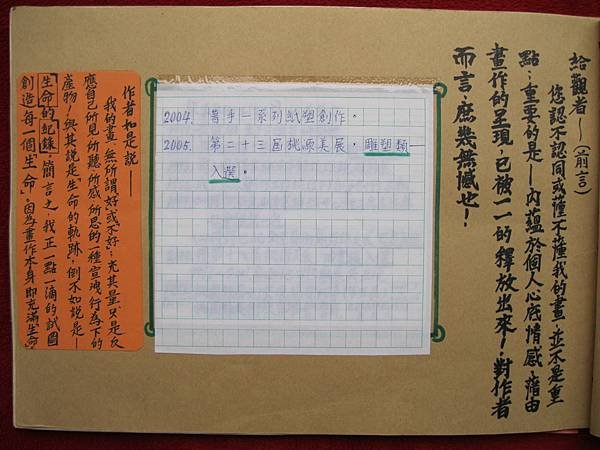 給觀者——(前言)
您認不認同或懂不懂我的畫，並不是重
點；重要的是——內蘊於個人心底情感，藉由
畫作的呈現，已被一一的釋放出來！對作者
而言，庶幾無憾也！
2004. 著手一系列紙塑創作。
2005. 第二十三屆桃源美展，雕塑類—
入選。
作者如是說——
我的畫，無所謂「好」或「不好」；充其量只是反
應自己所見所聽所感所思的一種宣洩行為下的
產物！與其說是「生命的軌跡」，倒不如說是——
「生命的紀錄」；簡言之，我正一點一滴的試圖
創造每一個「生命」，因為畫作本身即充滿生命